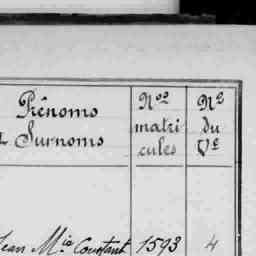 Prénoms
Surnoms
Nos
matri
cules
No
du
Ve
Jean Mie Constant 1593 4